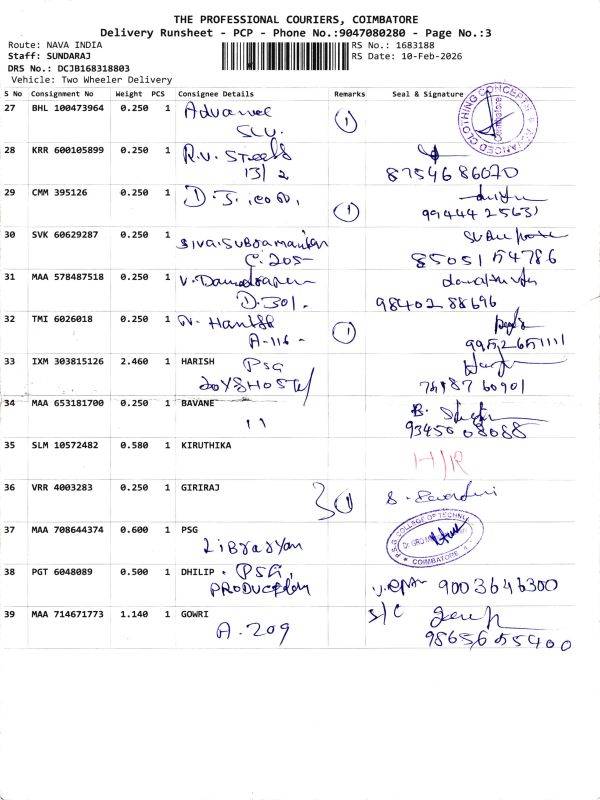 THE PROFESSIONAL COURIERS, COIMBATORE
Delivery Runsheet - PCP - Phone No.:9047080280 - Page No.:3
Route: NAVA INDIA
RS No.: 1683188
Staff: SUNDARAJ
RS Date: 10-Feb-2026
DRS No.: DCJB168318803
Vehicle: Two Wheeler Delivery
S No Consignment No Weight PCS Consignee Details Remarks Seal & Signature
27 BHL 100473964 0.250 1 Advance
SLV. 1
ADVANCED CLOTHING CONCEPTS
Coimbatore
28 KRR 600105899 0.250 1 R.V. Streets
13/2 8754686070
29 CMM 395126 0.250 1 D. J. 1
994442563
30 SVK 60629287 0.250 1 Siva.Subramanian
C. 205 8505154786
31 MAA 578487518 0.250 1 V.
D.301. 9840288696
32 TMI 6026018 0.250 1 N. Harish 1
A-116 - 9952651111
33 IXM 303815126 2.460 1 HARISH PSG
BOYSHOSTEL 760901
34 MAA 653181700 0.250 1 BAVANE
11 B. 9345608088
35 SLM 10572482 0.580 1 KIRUTHIKA H/R
36 VRR 4003283 0.250 1 GIRIRAJ 30 S.
37 MAA 708644374 0.600 1 PSG
Librayan
P.S.G. COLLEGE OF TECHNO
COIMBATORE - 4
38 PGT 6048089 0.500 1 DHILIP. PSG,
PRODUCTION 9003646300
39 MAA 714671773 1.140 1 GOWRI S/C
A. 209 9865655400